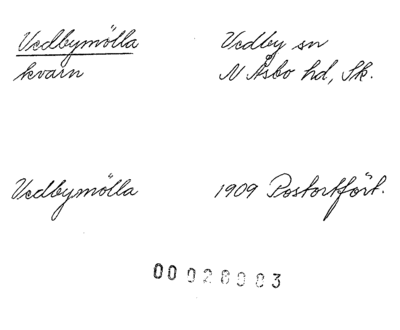 Vedbymölla Vedby sn
kvarn N Åsbo hd, Sk.
Vedbymölla 1909 Postortfört.